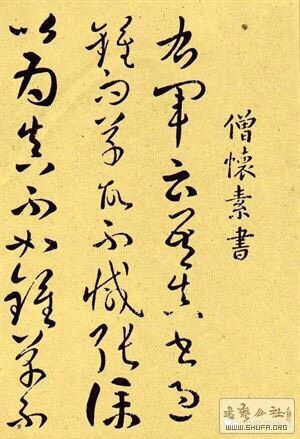 僧懷素書
右軍云吾真書過
鍾而草故不減張僕
以為真不如鍾草不
書藝公社
WWW.SHUFA.ORG